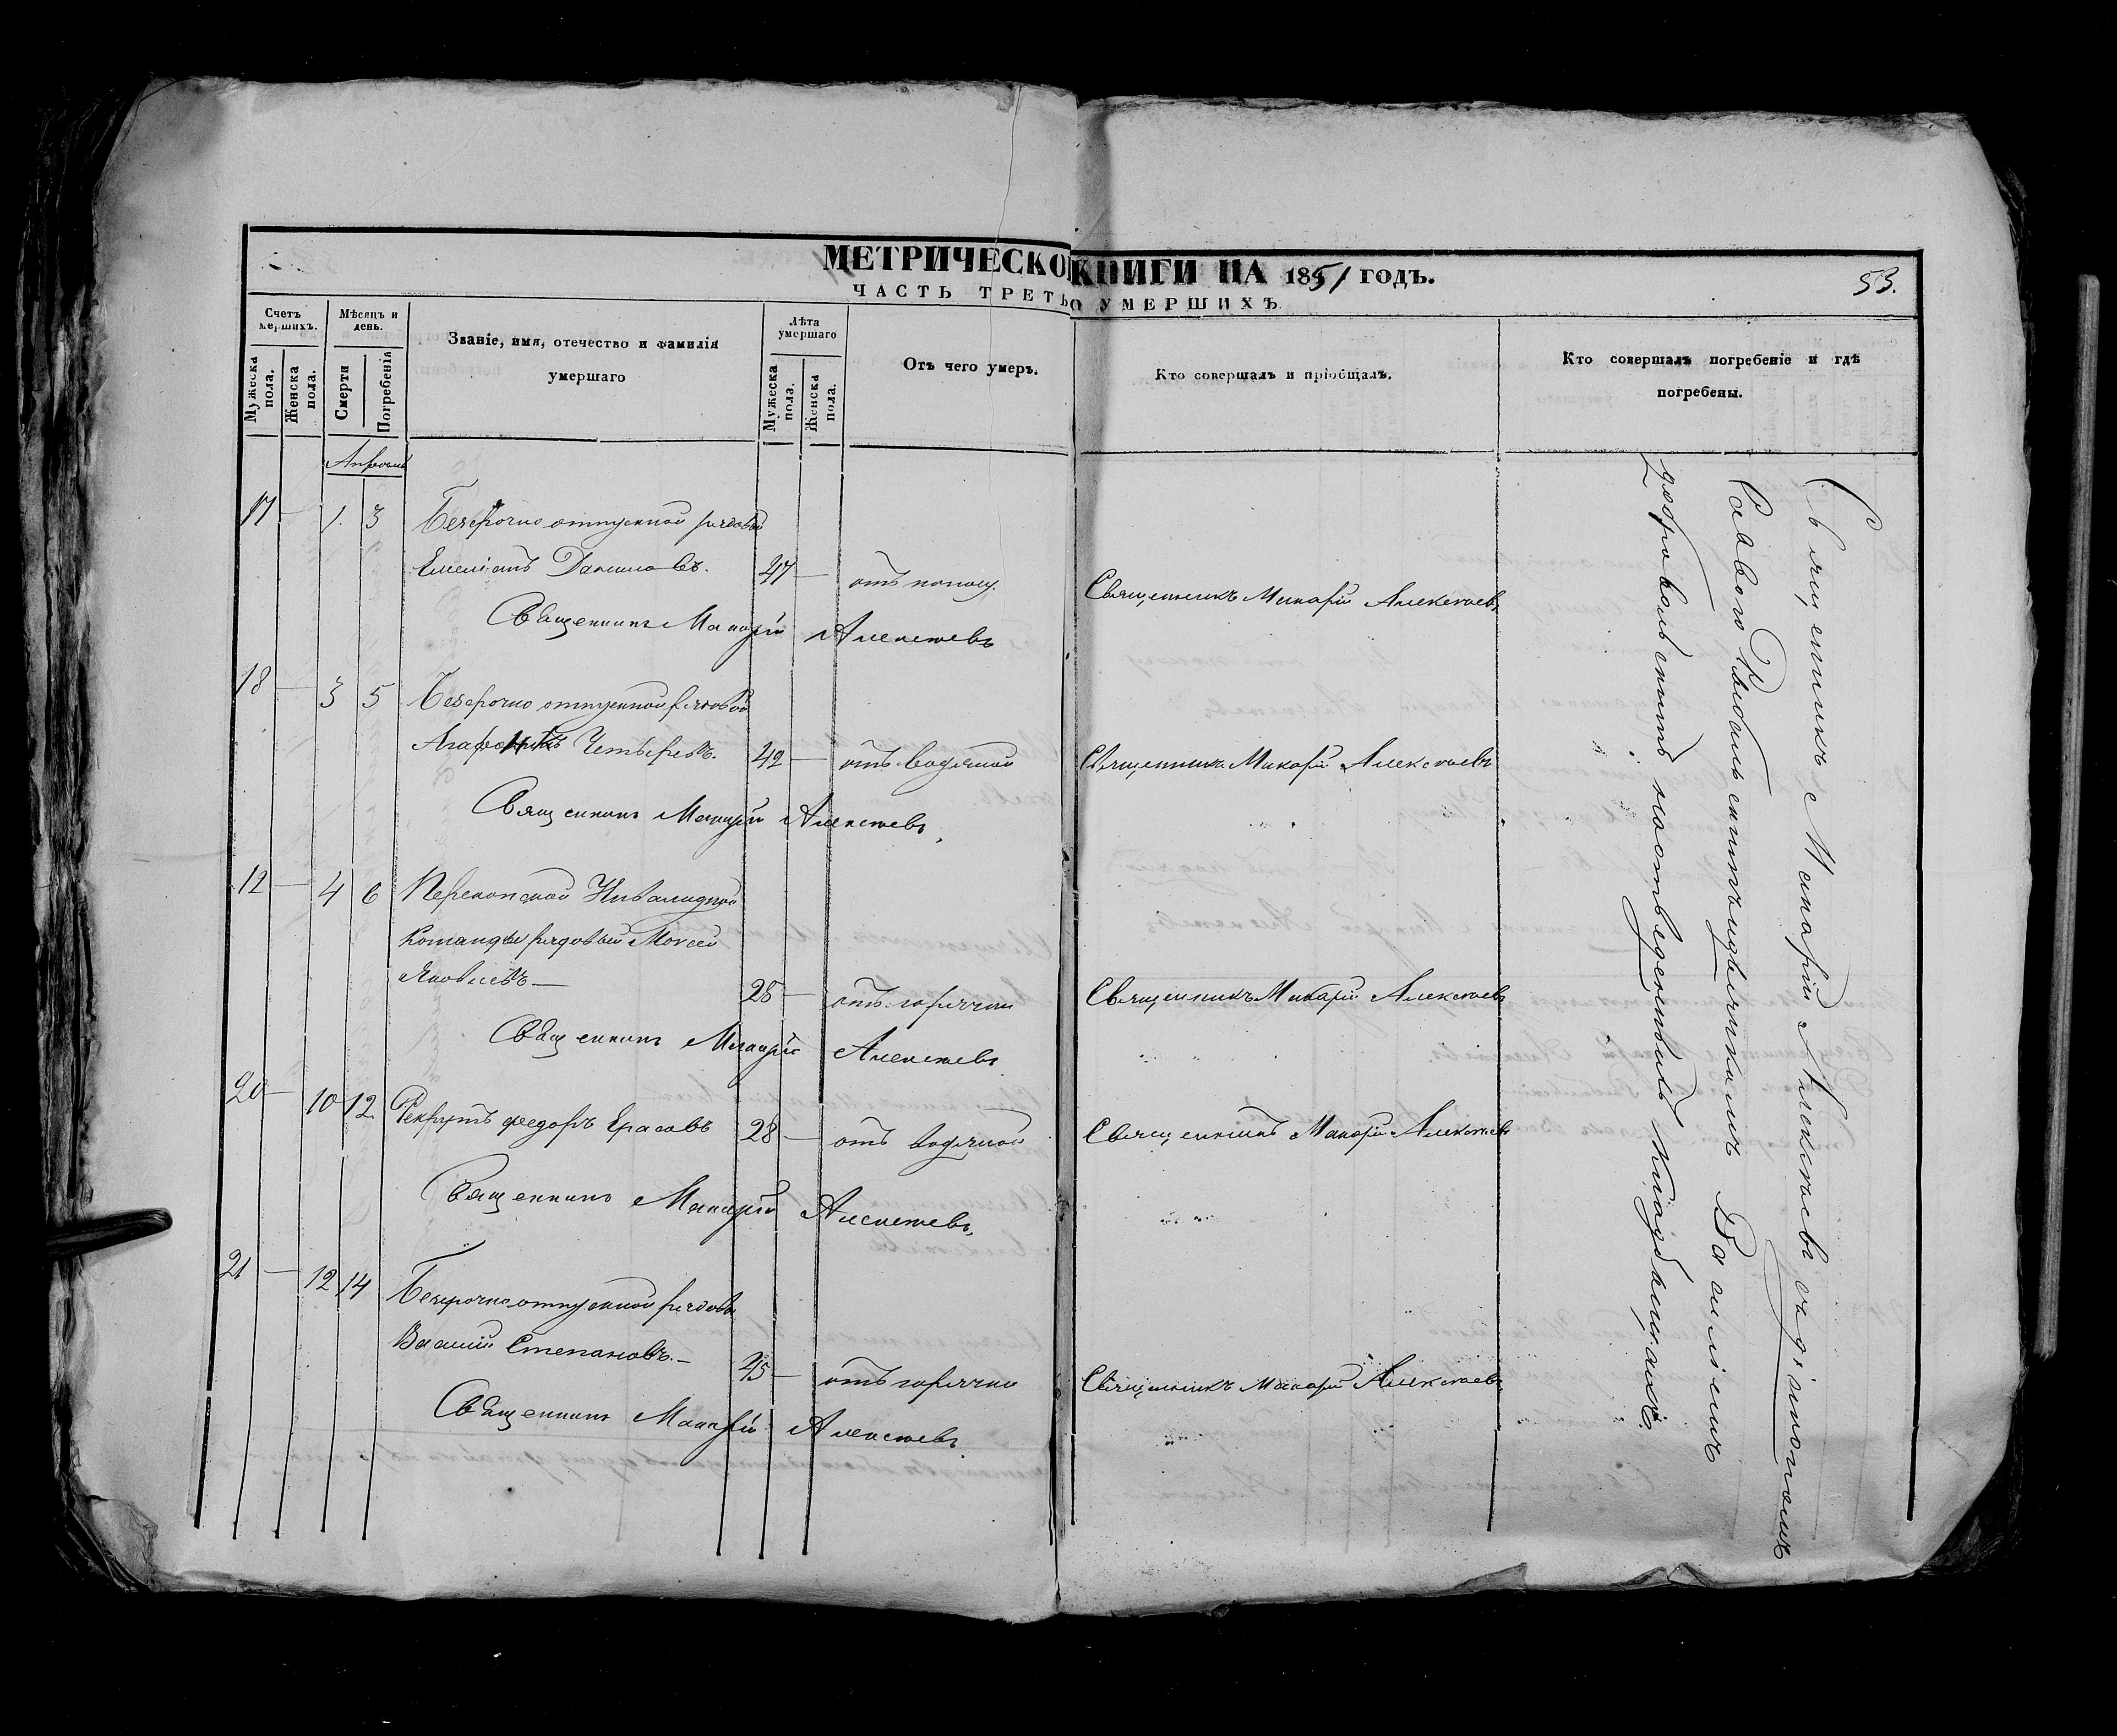 МЕТРИЧЕСКО КНИГИ НА 1851 ГОДЪ.
53.
ЧАСТЬ ТРЕТЬ О УМЕРШИХЪ.
Счетъ мершихъ.
Мужеска пола.
Женска пола.
Мѣсяцъ и день.
Смерти
Погребенія
Званіе, имя, отечество и фамилія
умершаго
Лѣта умершаго
Мужеска пола.
Женска пола.
Отъ чего умеръ.
Кто совершалъ и пріобщалъ.
Кто совершалъ погребеніе и гдѣ
погребены.
17 — 1. 3 Безсрочно отпускной рядовой
Емеліанъ Даниловъ. 47 — отъ поносу. Священникъ Макарій Алексѣевъ
Священникъ Макарій Алексѣевъ
18 — 3 5 Безсрочно отпускной рядовой
Четыревъ. 42 — отъ водяной Священникъ Макарій Алексѣевъ
Священникъ Макарій Алексѣевъ
12 — 4 6 Перекопской Инвалидной
Команды рядовый Моисей
Яковлевъ — 28 — отъ горячки Священникъ Макарій Алексѣевъ
Священникъ Макарій Алексѣевъ
20 — 10 12 Рекрутъ Федоръ 28 — отъ водяной Священникъ Макарій Алексѣевъ
Священникъ Макарій Алексѣевъ
21 — 12 14 Безсрочно отпускной рядовой
Василій Степановъ. — 45 — отъ горячки Священникъ Макарій Алексѣевъ
Священникъ Макарій Алексѣевъ
Священникъ Макарій Алексѣевъ съ діакономъ
Саввою